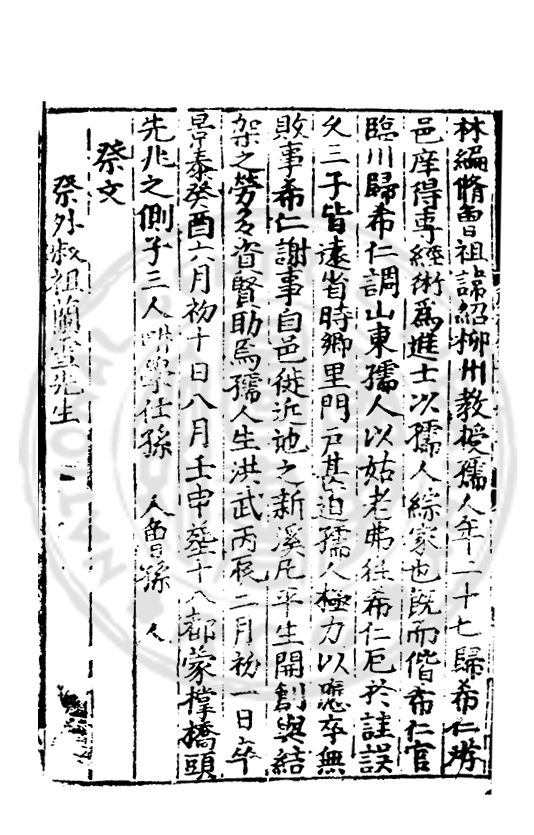 林編脩曾祖諱紹柳州教授孺人年二十七歸希仁游
邑庠得專經術為進士以孺人綜家也既而偕希仁官
臨川歸希仁調山東孺人以姑老弗往希仁厄於註誤
父三子皆遠省時鄉里門戶甚迫孺人極力以應卒無
敗事希仁謝事自邑徙近池之新溪凡平生開創與結
架之勞多資賢助焉孺人生洪武丙辰二月初一日卒
景泰癸酉六月初十日八月壬申塟十八都蒙撑橋頭
先兆之側子三人 學仕孫 人曾孫 人
祭文
祭外叔祖蘭雪先生